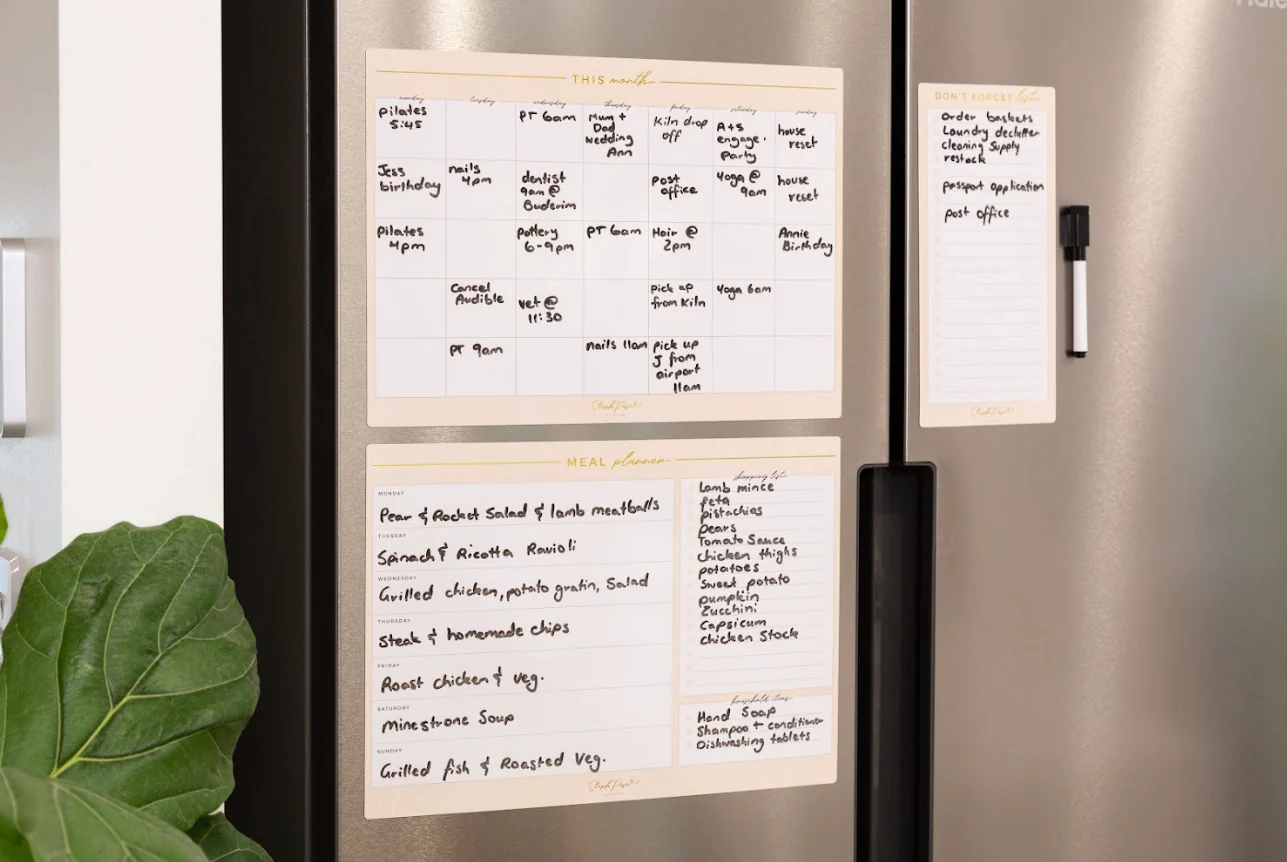 THIS month
monday tuesday wednesday thursday friday saturday sunday
pilates
5:45
PT 6am
Mum +
Dad
wedding
Ann
Kiln drop
off
A+S
engage.
Party
house
reset
Jess
birthday
nails
4pm
dentist
9am @
Buderim
post
office
yoga @
9am
house
reset
Pilates
4pm
pottery
6-9pm
PT 6am
Hair @
2pm
Annie
Birthday
Cancel
Audible
vet @
11:30
pick up
from Kiln
yoga 6am
PT 9am
nails 11am
pick up
J from
airport
11am
MEAL planner
MONDAY
Pear & Rocket Salad & lamb meatballs
TUESDAY
Spinach & Ricotta Ravioli
WEDNESDAY
Grilled chicken, potato gratin, Salad
THURSDAY
Steak & homemade chips
FRIDAY
Roast chicken & veg.
SATURDAY
Minestrone Soup
SUNDAY
Grilled fish & Roasted Veg.
shopping list
Lamb mince
feta
pistachios
pears
Tomato Sauce
chicken thighs
potatoes
Sweet potato
pumpkin
Zucchini
Capsicum
chicken Stock
household items
Hand Soap
Shampoo + conditioner
Dishwashing tablets
DON'T FORGET list
Order baskets
Laundry declutter
cleaning Supply
restock
passport application
post office